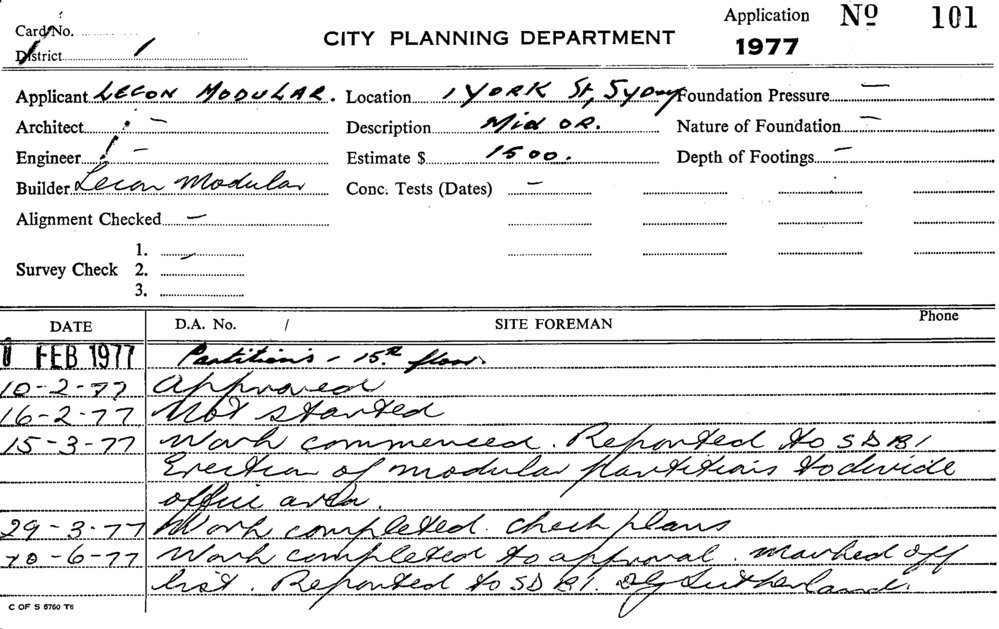 Card No.
Application No 101
District 1
CITY PLANNING DEPARTMENT
1977
Applicant LECON MODULAR. Location 1 YORK St, Sydney Foundation Pressure —
Architect — Description Mid OR. Nature of Foundation —
Engineer — Estimate $ 1500. Depth of Footings —
Builder Lecon Modular Conc. Tests (Dates) —
Alignment Checked —
1.
Survey Check 2.
3.
DATE D.A. No. / SITE FOREMAN Phone
FEB 1977 Partitions - 15th floor.
10-2-77 Approved
16-2-77 Not started
15-3-77 Work commenced. Reported to SDBI
Erection of modular partitions to divide
office area.
29-3-77 Work completed. check plans
-6-77 Work completed to approval. marked off
list. Reported to SDBI. DG Sutherland.
C OF S 5750 T6